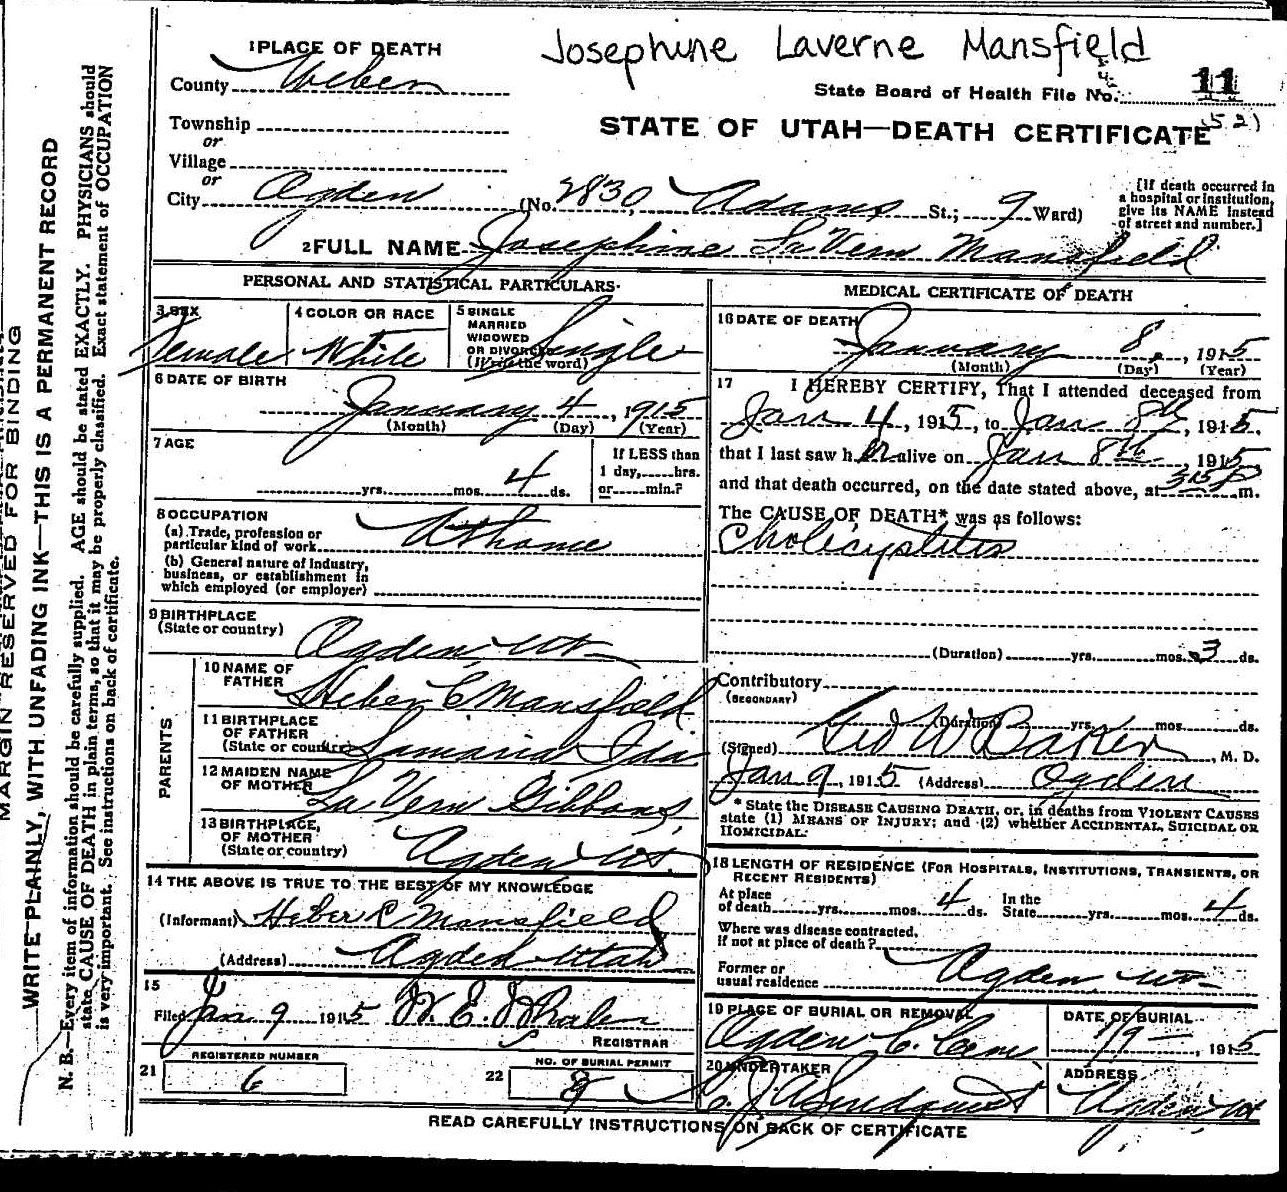 Josephine Laverne Mansfield
1 PLACE OF DEATH
County Weber
State Board of Health File No. 11
Township
or
Village
or
City Ogden (No. 2830 Adams St.; 9 Ward)
STATE OF UTAH—DEATH CERTIFICATE
52)
[If death occurred in
a hospital or institution,
give its NAME instead
of street and number.]
2 FULL NAME Josephine La Vern Mansfield
PERSONAL AND STATISTICAL PARTICULARS
3 SEX
Female
4 COLOR OR RACE
White
5 SINGLE
MARRIED
WIDOWED
OR DIVORCED
(Write the word)
Single
6 DATE OF BIRTH
January 4, 1915
(Month) (Day) (Year)
7 AGE
yrs. mos. 4 ds.
If LESS than
1 day, hrs.
or min.?
8 OCCUPATION
(a) Trade, profession or
particular kind of work At home
(b) General nature of industry,
business, or establishment in
which employed (or employer)
9 BIRTHPLACE
(State or country) Ogden Ut
PARENTS
10 NAME OF
FATHER Heber C Mansfield
11 BIRTHPLACE
OF FATHER
(State or country) Samaria Ida
12 MAIDEN NAME
OF MOTHER La Vern Gibbons
13 BIRTHPLACE,
OF MOTHER
(State or country) Ogden Ut.
14 THE ABOVE IS TRUE TO THE BEST OF MY KNOWLEDGE
(Informant) Heber C Mansfield
(Address) Ogden Utah
15
Filed Jan 9 1915 W. E. Whalen
REGISTRAR
21 REGISTERED NUMBER
6
22 NO. OF BURIAL PERMIT
8
MEDICAL CERTIFICATE OF DEATH
16 DATE OF DEATH
January 8, 1915
(Month) (Day) (Year)
17 I HEREBY CERTIFY, That I attended deceased from
Jan 4, 1915, to Jan 8th, 1915,
that I last saw her alive on Jan 8th 1915
and that death occurred, on the date stated above, at 3:15 P m.
The CAUSE OF DEATH* was as follows:
Cholicystites
(Duration) yrs. mos. 3 ds.
Contributory
(SECONDARY)
(Duration) yrs. mos. ds.
(Signed) Geo W Baker, M. D.
Jan 9, 1915 (Address) Ogden
* State the DISEASE CAUSING DEATH, or, in deaths from VIOLENT CAUSES
state (1) MEANS OF INJURY; and (2) whether ACCIDENTAL, SUICIDAL OR
HOMICIDAL.
18 LENGTH OF RESIDENCE (FOR HOSPITALS, INSTITUTIONS, TRANSIENTS, OR
RECENT RESIDENTS)
At place
of death yrs. mos. 4 ds. In the
State yrs. mos. 4 ds.
Where was disease contracted,
if not at place of death?
Former or
usual residence Ogden, Ut
19 PLACE OF BURIAL OR REMOVAL
Ogden C. Cem
DATE OF BURIAL
1/9, 1915
20 UNDERTAKER
ADDRESS
Ogden Ut
READ CAREFULLY INSTRUCTIONS ON BACK OF CERTIFICATE
MARGIN RESERVED FOR BINDING
WRITE PLAINLY, WITH UNFADING INK—THIS IS A PERMANENT RECORD
N. B.—Every item of information should be carefully supplied. AGE should be stated EXACTLY. PHYSICIANS should
state CAUSE OF DEATH in plain terms, so that it may be properly classified. Exact statement of OCCUPATION
is very important. See instructions on back of certificate.